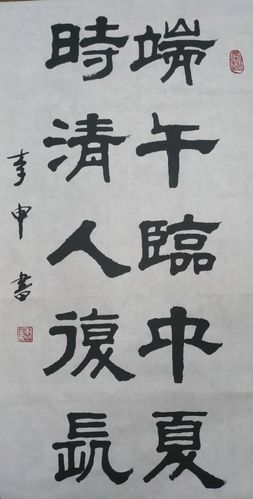 端午臨中夏
時清人復長
申書